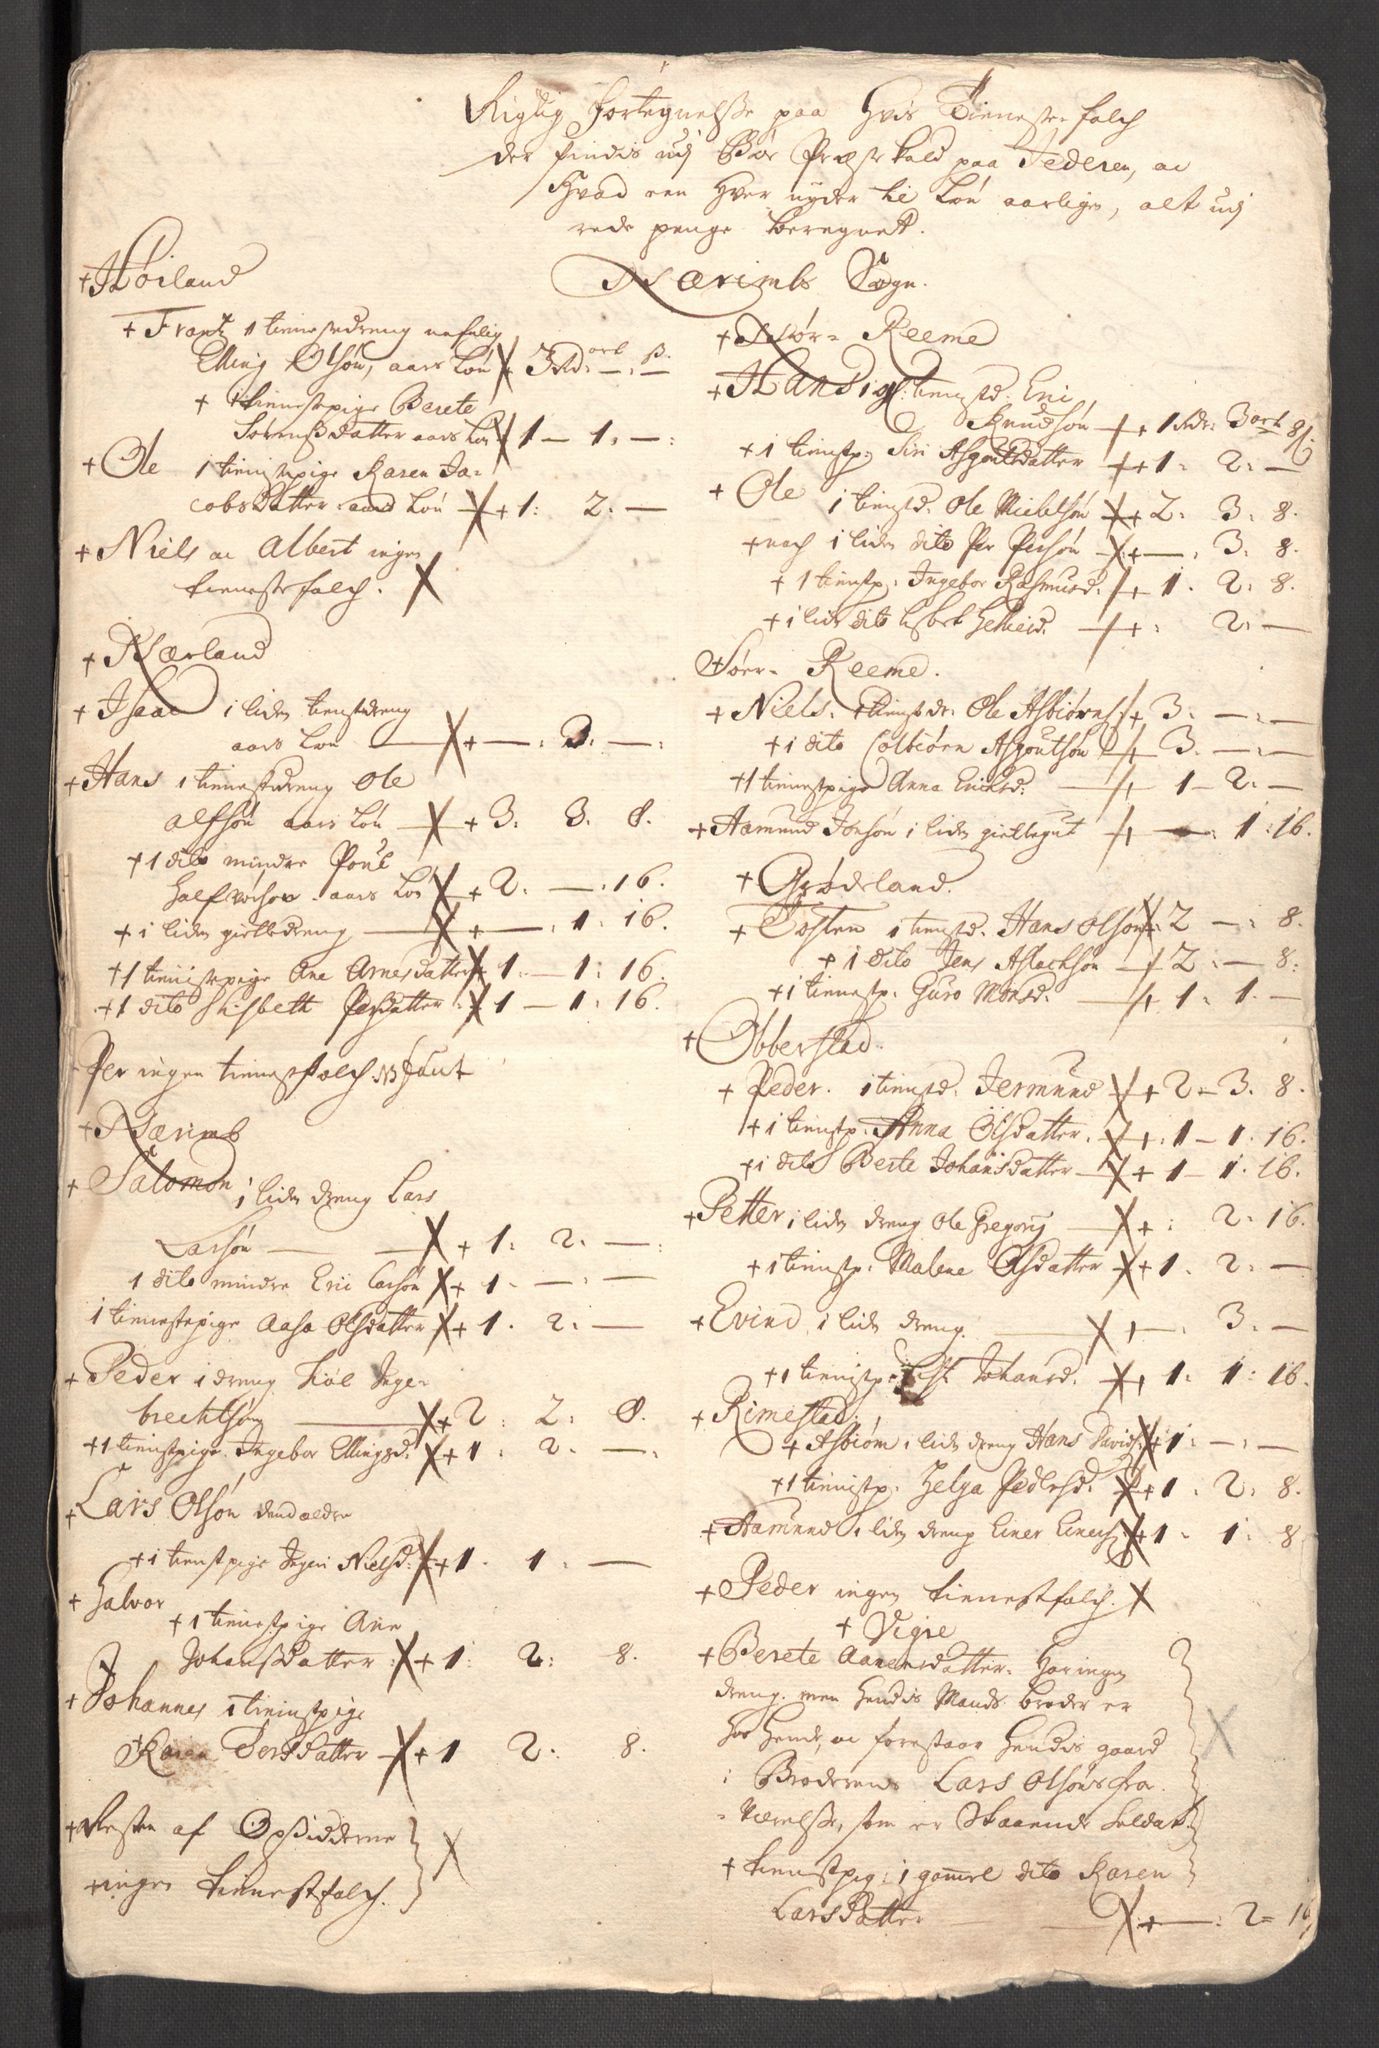 Rigtig fortegnelse paa hvis Tieneste folch
der findis udj Bøe Præste kald paa Jederen, oc
hvad een hver nyder til Løn aarligen, alt udj
rede penge beregnet.
Nærimbs Sogn.
+ Høiland
+ Frantz 1 tienestedreng nafnlig
Elling Olsøn, aars Løn + 3 Rd: ort — ß. —
+ 1 tienestepige Berete
Sørensdatter aars Løn 1 — 1: —:
+ Ole 1 tienistepige Karen Ja-
cobsdatter aars Løn + 1: 2: —
+ Niels oc Albert ingen
tienestefolch.
+ Nærland
+ Isaac 1 liden tienstdreng
aars Løn + —: 2: —:
+ Hans 1 tienestdreng Ole
Alfsøn aars Løn + 3: 3: 8.
+ 1 dito mindre Poul
aars Løn + 2: —: 16.
+ 1 liden gietledreng + —: 1: 16.
+ 1 tienistepige Ane Arnesdatter + 1: — 1: 16.
+ 1 dito Lisbeth Persdatter + 1 — 1: 16.
Per ingen tienestfolch
+ Nærimb
+ Salomon 1 liden dreng Lars
Larsøn + 1: 2: —:
1 dito mindre Eric Larsøn + 1: —: —
1 tienestepige Aasa Olsdatter + 1. 2: —
+ Peder 1 dreng Inge-
brechtsøn + 2: 2: 8.
+ 1 tienistpige Ingebor Ellingsd. + 1: 2: —:
+ Lars Olsøn dend ældre
+ 1 tienstpige Ingri Nielsd: + 1. 1: —
+ Halvor
+ 1 tienestpige Ane
Johansdatter + 1: 2: 8.
+ Johannes 1 tienistpige
Karen Persdatter + 1 2: 8.
+ Resten af Opsidderne
+ ingen tienestfolch.
+ Nør= Reeme
+ Hans 1 tienistd. Eric
Knudsøn + 1 Rdr: 3 ort 8 ß
+ 1 tienstp. Siri Asgoutsdatter + 1: 2: —
+ Ole 1 tienstd. Ole Michelsøn + 2: 3: 8.
+ noch 1 liden dito Per Persøn + —: 3: 8.
+ 1 tienstp. Ingebor Rasmusd. + 1. 2: 8.
+ 1 liden dito Lisbet + : 2: —
Søer= Reeme.
+ Niels. 1 tienstdr: Ole Asbiørns: + 3: —: —
+ 1 dito Colbiørn Asgoutsøn + 3: —: —
+ 1 tienestpige Anna Ericksd: + 1 — 2: —
+ Aamund Jonsøn 1 liden gietlegut + —: 1: 16.
+ Grødeland.
+ Tosten 1 tienstd. Hans Olsøn 2 —: 8.
+ 1 dito Jens Aslachsøn 2: — 8:
+ 1 tienestp. Guro Monsd. + 1: 1. —
+ Obberstad
+ Peder. 1 tienstd. Jermund + 2 — 3. 8.
+ 1 tienstp. Anna Olsdatter. + : 1 — 1: 16.
+ 1 dito Berte Johansdatter + 1 — 1: 16.
+ Petter 1 liden dreng Ole Gregorij + : 2: 16.
+ 1 tienstp. Malene Olsdatter + 1. 2: —
+ Evind 1 liden dreng. + —. 3: —
+ 1 tienistp. Johansd. + 1: 1: 16.
+ Rimestad.
+ Asbiørn 1 liden dreng Hans Davids: + 1: —: —
+ 1 tienistp. Helga Pedersd. + 1. 2: 8.
+ Aamund 1 liden dreng Einer Einersø + 1: 1: 8
+ Peder ingen tienestfolch.
+ Vigre
+ Berete Aanensdatter. har ingen
dreng. men hendis Mands broder er
hos hende, oc forestaar hendis gaard
i Broderens Lars Olsøns fra-
værelse, som er Skaanede Soldat.
+ tienstpig: 1 gamel dito Karen
Larsdatter + —: 2 = 16